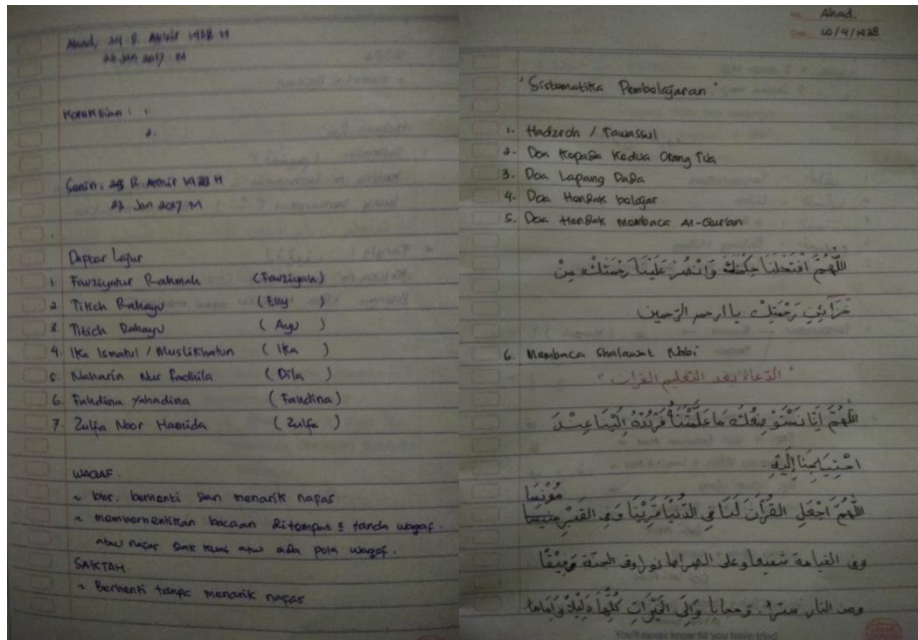 Ahad, 24 R. Akhir 1438 H
22 Jan 2017 M
Koreksian : 1.
2.
Senin, 25 R. Akhir 1438 H
23 Jan 2017 M
Daptar Lajur
1. Fauziyatur Rahmah (Fauziyah)
2. Titich Rahayu (Elly)
3. Titich Rahayu (Ayu)
4. Ika Ismatul / Muslikhatun (Ika)
5. Naharia Nur Fadhila (Dila)
6. Fahdina Yahadina (Fahdina)
7. Zulfa Noor Hamida (Zulfa)
WAQAF
~ berhenti dan menarik napas
~ memberhentikan bacaan ditempat² tanda waqaf.
atau napas tidak kuat atau ada pola waqaf.
SAKTAH
~ Berhenti tanpa menarik napas
Ahad,
Date 10/4/1438
"Sistematika Pembelajaran"
1. Hadzroh / Tawassul
2. Doa Kepada Kedua Orang Tua
3. Doa Lapang Dada
4. Doa Hendak belajar
5. Doa Hendak Membaca Al-Quran
اللّٰهُمَّ افْتَحْ لَنَا حِكْمَتَكَ وَانْشُرْ عَلَيْنَا رَحْمَتَكَ مِنْ
خَزَائِنِ رَحْمَتِكَ يا ارحم الرّحمين
6. Membaca Shalawat Nabi
" الدّعاء بعد التعليم القرآن "
اللّٰهُمَّ اِنَّا نَسْتَوْدِعُكَ مَا عَلَّمْتَنَا فَرْدُدْهُ اِلَيْنَا عِنْدَ
احْتِيَاجِنَا اِلَيْهِ
مُؤْنِسًا
اللّٰهُمَّ اجْعَلِ القُرْآنَ لَنَا فِي الدُّنْيَا قَرِيْنًا وَفِي القَبْرِ
وفى القيامة شفيعا وعلى الصراط نورا وفى الجنة رفيقًا
ومن النار سترا وحجابا وَاِلَى الخَيْرَاتِ كُلِّهَا دَلِيْلًا وَاِمَامًا
You'll never know till you have tried